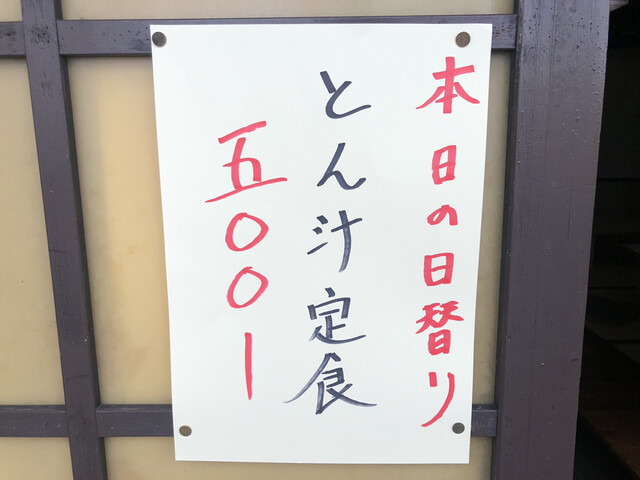 本日の日替り
とん汁定食
五〇〇ー